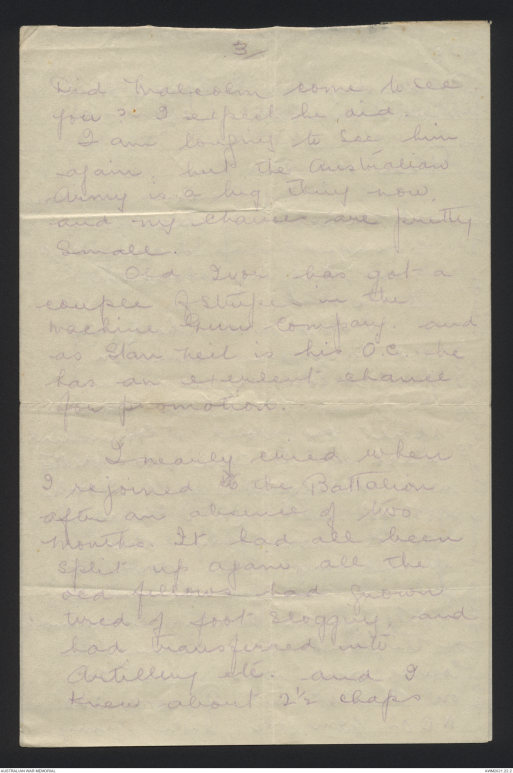 3
Did Malcolm come to see
you? I expect he did.
I am longing to see him
again, but the Australian
Army is a big thing now,
and my chances are pretty
small.
Old Ivor has got a
couple of stripes in the
Machine Gun Company. and
as Stan Neil is his O.C. he
has an excellent chance
for promotion.
I nearly cried when
I rejoined to the Battalion
after an absence of two
months. It had all been
split up again all the
old fellows had grown
tired of foot slogging, and
had transferred into
Artillery etc. and I
knew about 2½ chaps
AUSTRALIAN WAR MEMORIAL